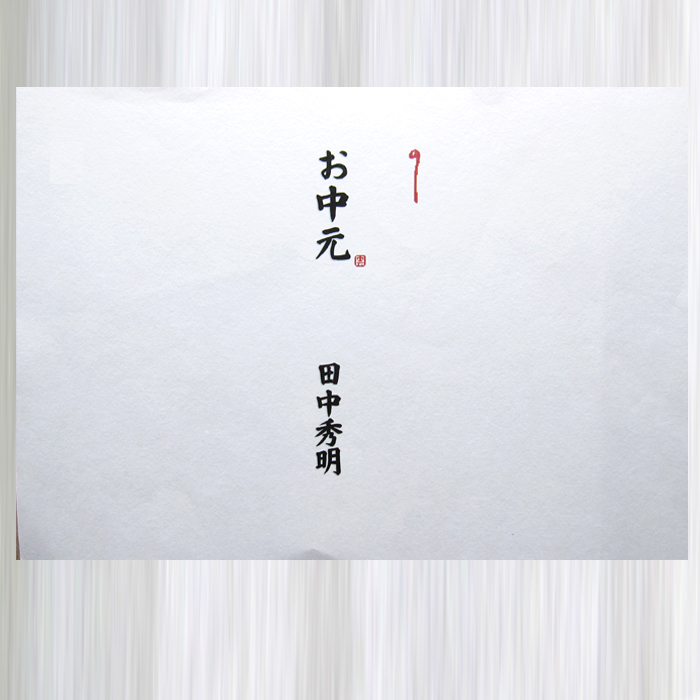 お中元
田中秀明